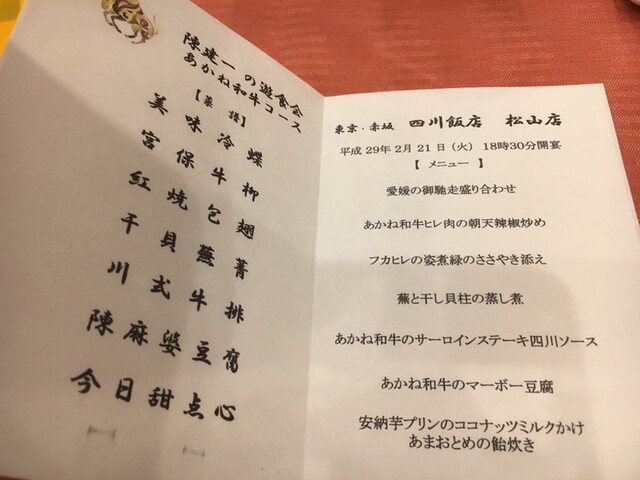 陳建一の遊食会
あかね和牛コース
【菜譜】
美味冷蝶
宮保牛柳
紅焼包翅
干貝蕪菁
川式牛排
陳麻婆豆腐
今日甜点心
東京・赤坂 四川飯店 松山店
平成29年2月21日(火) 18時30分開宴
【メニュー】
愛媛の御馳走盛り合わせ
あかね和牛ヒレ肉の朝天辣椒炒め
フカヒレの姿煮緑のささやき添え
蕪と干し貝柱の蒸し煮
あかね和牛のサーロインステーキ四川ソース
あかね和牛のマーボー豆腐
安納芋プリンのココナッツミルクかけ
あまおとめの飴炊き